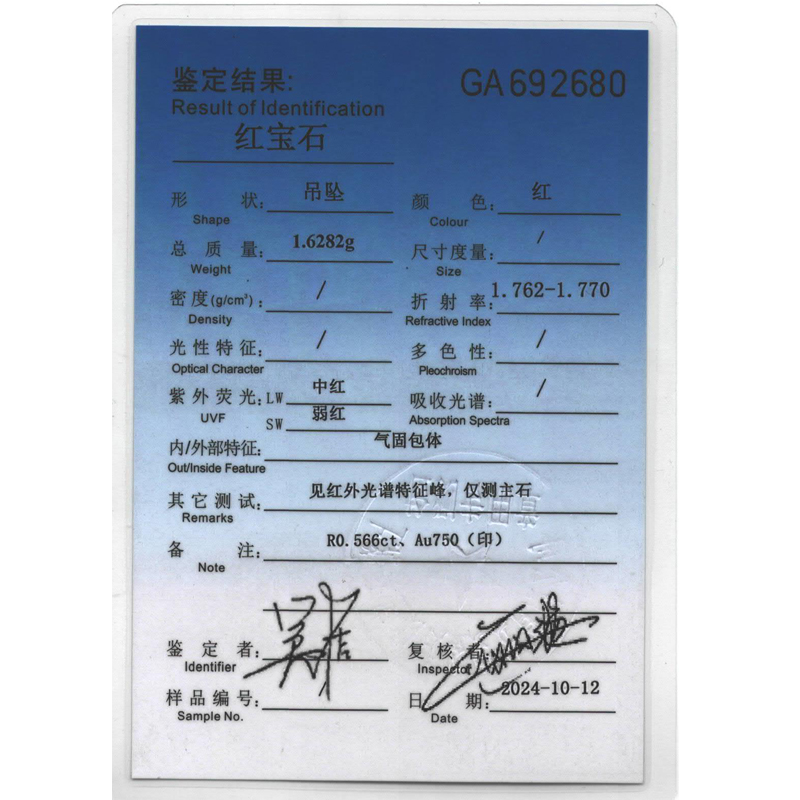 鉴定结果: GA692680
Result of Identification
红宝石
形 状: 吊坠 颜 色: 红
Shape Colour
总 质 量: 1.6282g 尺寸度量: /
Weight Size
密度(g/cm³): / 折 射 率: 1.762-1.770
Density Refractive Index
光性特征: / 多 色 性: /
Optical Character Pleochroism
紫外荧光: LW 中红 吸收光谱: /
UVF SW 弱红 Absorption Spectra
内/外部特征: 气固包体
Out/Inside Feature
其它测试: 见红外光谱特征峰，仅测主石
Remarks
备 注: R0.566ct、Au750（印）
Note
鉴 定 者: 复 核 者:
Identifier Inspector
样品编号: 日 期: 2024-10-12
Sample No. Date